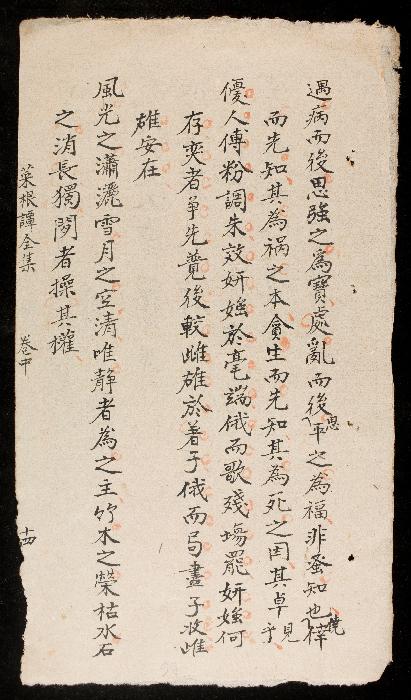 遇病而後思強之為寶處亂而後思平之為福非蚤知也倖
而先知其為禍之本貪生而先知其為死之因其卓見乎
優人傅粉調朱效妍媸於毫端俄而歌殘場罷妍媸何
存奕者爭先競後較雌雄於着子俄而局盡子收雌
雄安在
風光之瀟灑雪月之空清唯靜者為之主竹木之榮枯水石
之消長獨閒者操其權
菜根譚全集 卷中 十四